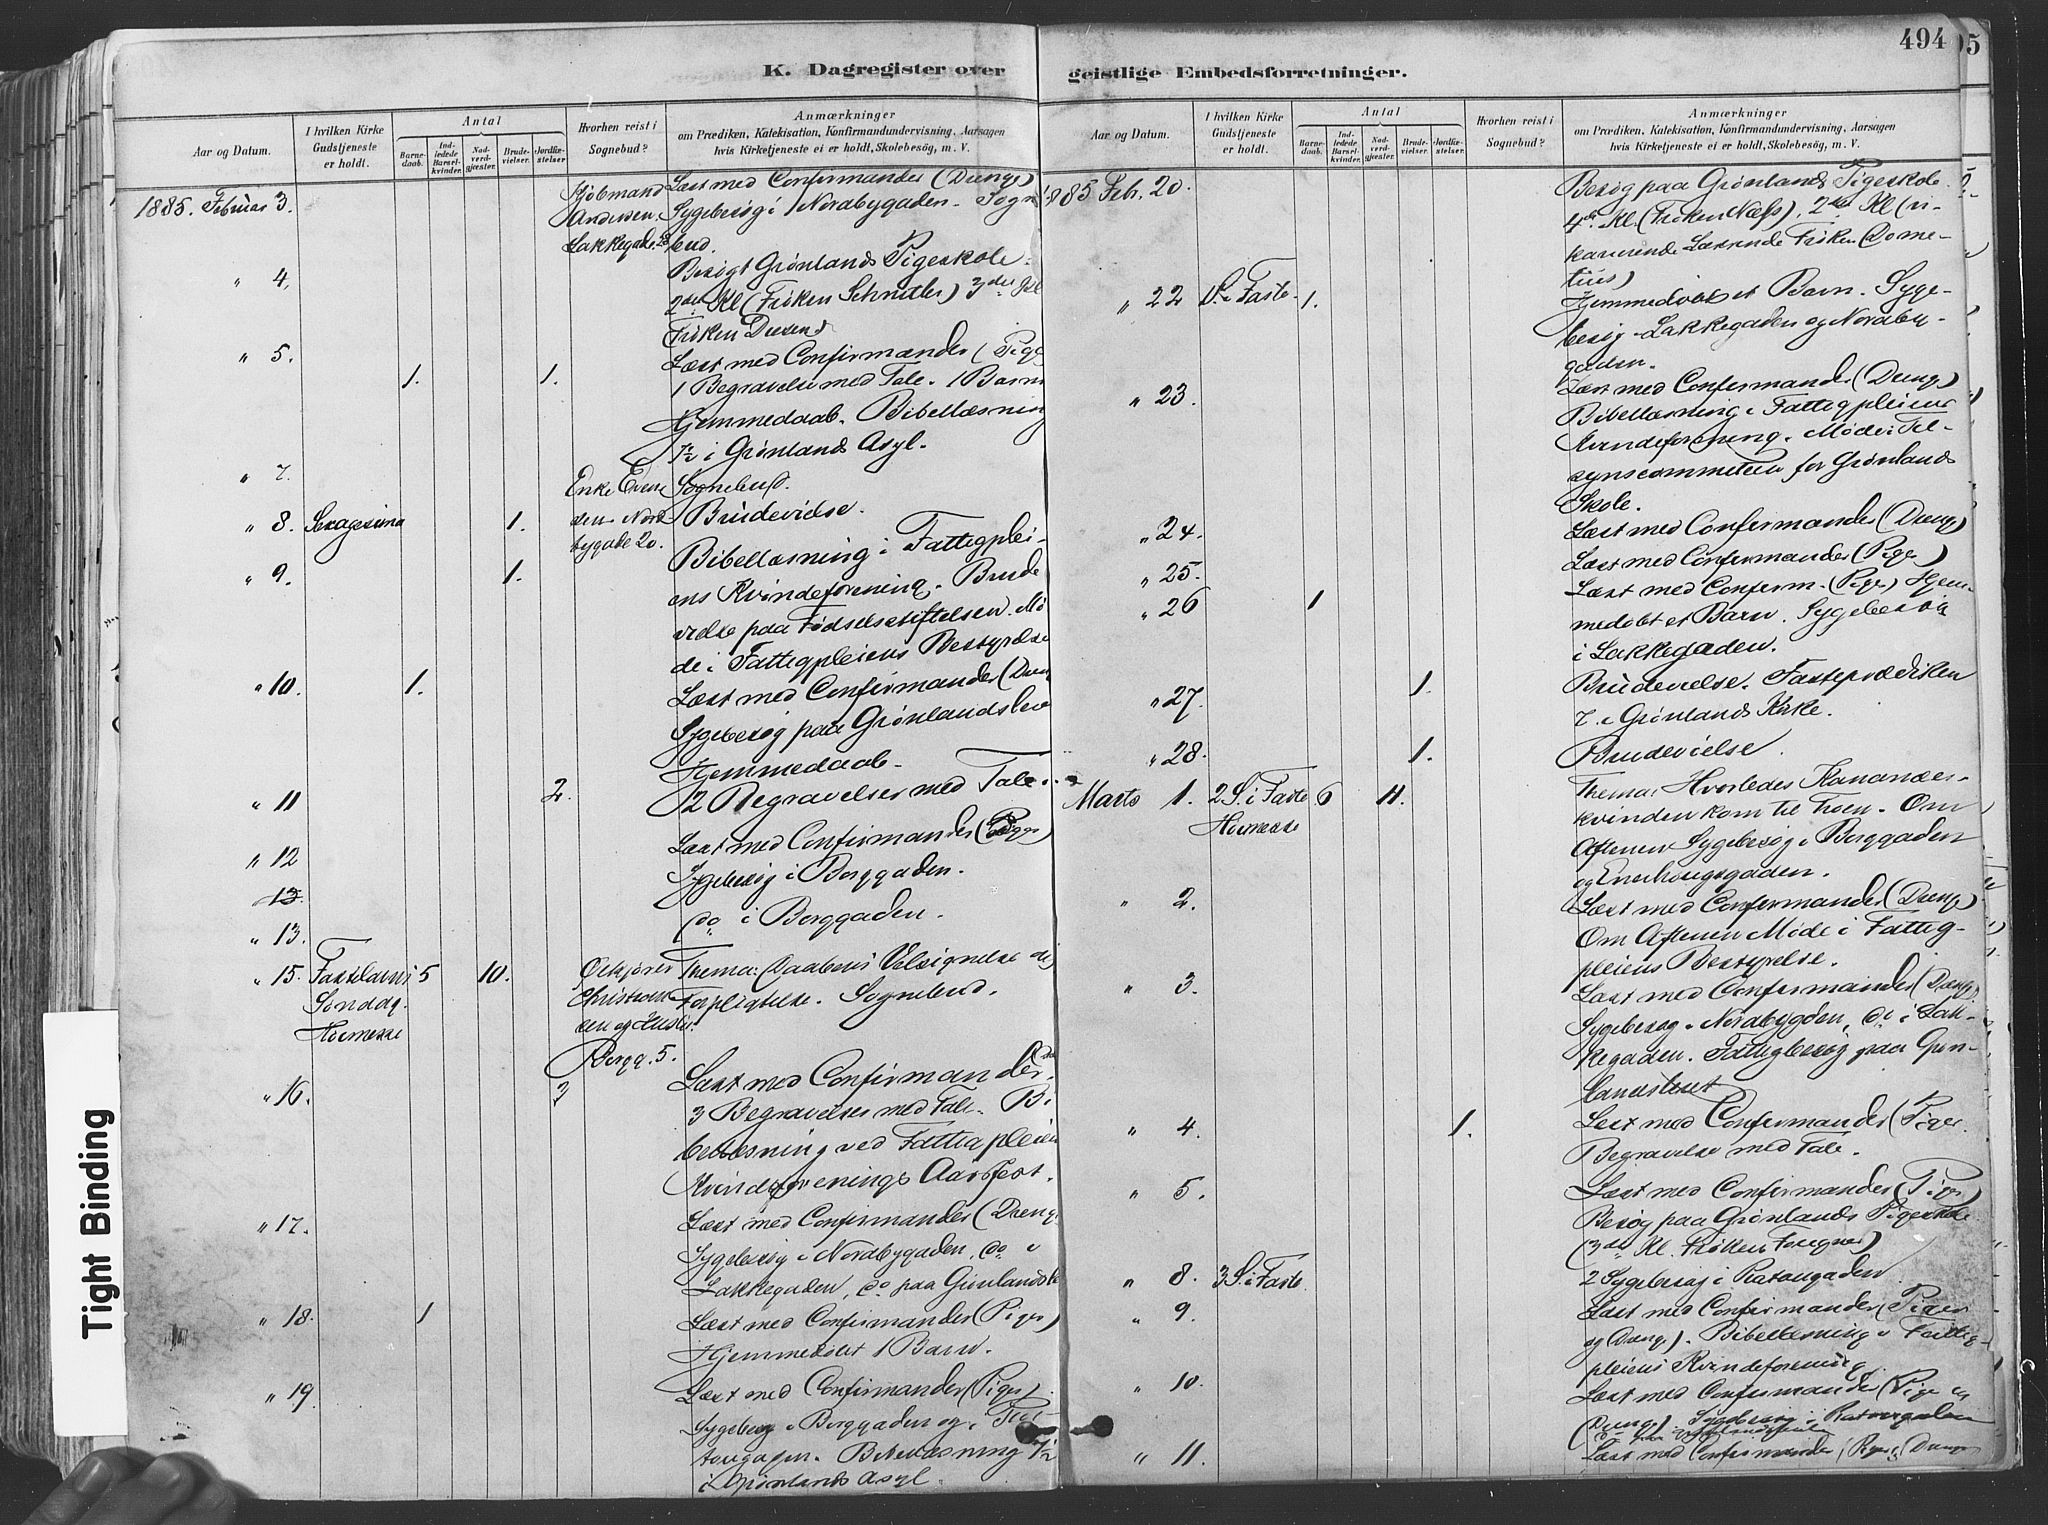 494
5
K. Dagregister over
geistlige Embedsforretninger.
Aar og Datum.
I hvilken Kirke
Gudstjeneste
er holdt.
Antal
Barne-
daab.
Ind-
ledede
Barsel-
kvinder.
Nad-
verd-
gjester.
Brude-
vielser.
Jordfæ-
stelser.
Hvorhen reist i
Sognebud?
Anmærkninger
om Prædiken, Katekisation, Konfirmandundervisning, Aarsagen
hvis Kirketjeneste ei er holdt, Skolebesög, m. V.
1885. Februar 3.
Andersen,
Lakkegade 28
Læst med Confirmander (Drenge)
Sygebesøg i Nordbygaden. Sogne
bud.
" 4,
Besøgt Grønlands Pigeskole
2den Kl (Frøken Schnitler) 3die Kl
Frøken
" 5.
1.
1.
Læst med Confirmander (Pige
1 Begravelse med Tale. 1 Barn
Hjemmedaab. Bibellæsning
7½ i Grønlands Asyl.
" 7.
Enke
Sognebud.
" 8. Sexagesima
1.
Nord
bygade 20.
Brudevielse.
" 9.
1.
Bibellæsning i Fattigplei-
ens Kvindeforening. Brude
vielse paa Fødselsstiftelsen. Mø
de i Fattigpleiens Bestyrelse
" 10.
1.
Læst med Confirmander (Dren
Sygebesøg paa Grønlandsleret
Hjemmedaab.
" 11
2.
2 Begravelser med Tale
Læst med Confirmander (Piger)
" 12
Sygebesøg i Borggaden.
13.
" 13.
do i Borggaden.
" 15. Fastelavns
Søndag.
Høimesse
5
10.
Christian
sen og Hustru.
Borgg. 5.
Thema: Daabens Velsignelse og
Forpligtelse. Sognebud.
" 16.
3
Læst med Confirmander.
3 Begravelser med Tale. Bi
bellæsning ved Fattigpleiens
Kvindeforenings Aarsfest.
" 17.
Læst med Confirmander (Drenge
Sygebesøg i Nordbygaden, do i
Lakkegaden, do paa Grønlandsle
" 18.
1
Læst med Confirmander (Piger)
Hjemmedøbt 1 Barn.
" 19
Læst med Confirmander (Piger)
Sygebesøg i Borggaden og i
Bibellæsning 7½
i Grønlands Asyl.
Aar og Datum.
I hvilken Kirke
Gudstjeneste
er holdt.
Antal
Barne-
daab.
Ind-
ledede
Barsel-
kvinder.
Nad-
verd-
gjester.
Brude-
vielser.
Jordfæ-
stelser.
Hvorhen reist i
Sognebud?
Anmærkninger
om Prædiken, Katekisation, Konfirmandundervisning, Aarsagen
hvis Kirketjeneste ei er holdt, Skolebesög, m. V.
1885 Feb. 20.
Besøg paa Grønlands Pigeskole.
4de Kl. (Frøken Næss), 2den Kl (vi-
karierende Lærerinde Frøken Dome-
tius)
" 22
1.
Hjemmedøbt et Barn. Syge-
besøg i Lakkegaden og Nordby-
gaden.
" 23.
Læst med Confirmander (Drenge)
Bibellæsning i Fattigpleiens
Kvindeforening. Møde i Til-
synscommiteen for Grønlands
Skole.
" 24.
Læst med Confirmander (Drenge)
" 25.
Læst med Confirmander (Piger)
" 26
1
Læst med Conferm. (Piger) Hjem-
medøbt et Barn. Sygebesøg
i Lakkegaden.
" 27.
1.
Brudevielse. Fasteprædiken
7. i Grønlands Kirke.
" 28.
1.
Brudevielse.
Marts 1. 2 S. i Faste
Høimesse
6
11.
Thema: Hvorledes Kananæer-
kvinden kom til Troen. Om
Aftenen Sygebesøg i Borggaden
og Enerhougsgaden.
" 2.
Læst med Confirmander (Drenge)
Om Aftenen Møde i Fattig-
pleiens Bestyrelse.
" 3.
Læst med Confirmander (Drenge)
Sygebesøg i Nordbygden, do i Lak-
kegaden. Fattigbesøg paa Grøn-
landsleret
" 4.
1.
Læst med Confirmander (Piger.
Begravelse med Tale.
" 5.
Læst med Confirmander (Piger)
Besøg paa Grønlands Pigeskole
(3die Kl. Frøken
" 8. 3 S. i Faste.
2 Sygebesøg i
" 9.
Læst med Confirmander (Piger
og Drenge). Bibellæsning i Fattig-
pleiens Kvindeforening.
" 10.
Læst med Confirmander (Pige og
Drenge). Sygebesøg i
" 11.
Læst med Confirmander (Piger & Drenge
Tight Binding